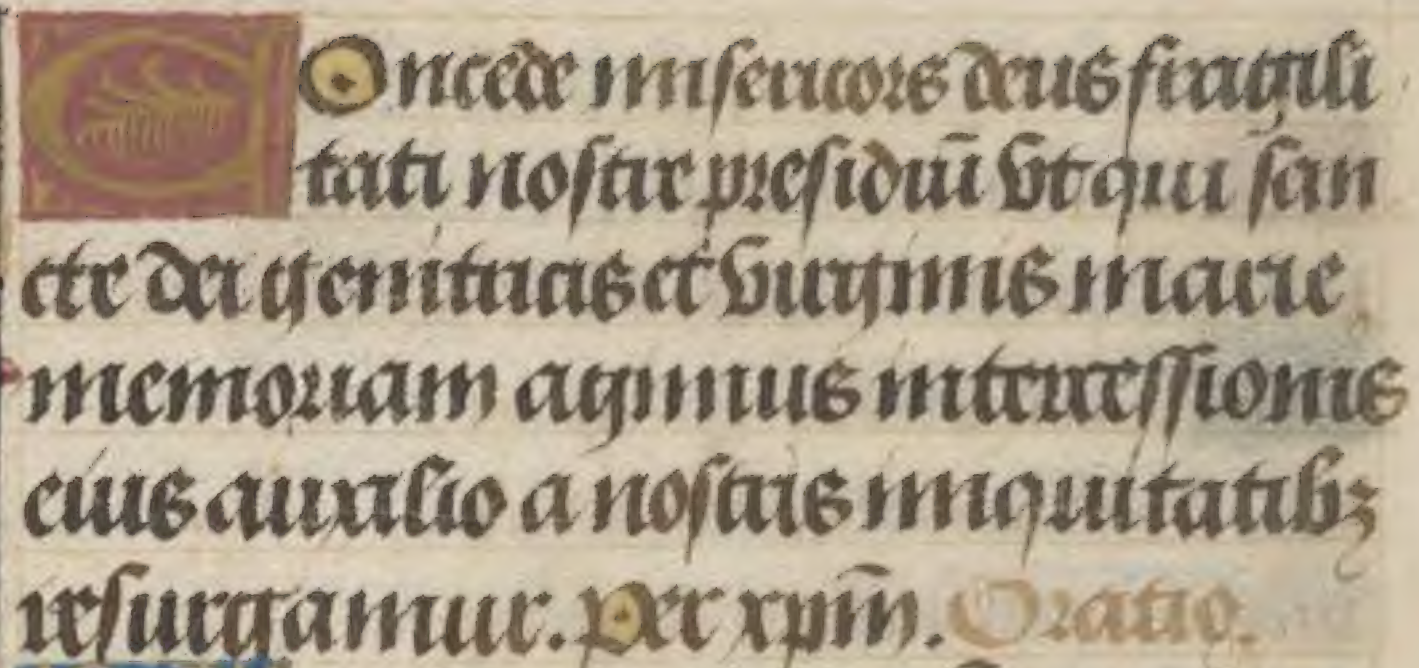 COncede misericors deus fragili
tati nostre presidiū vt qui san
cte dei genitricis et virginis marie
memoriam agimus intercessionis
eius auxilio a nostris iniquitatibꝫ
resurgamur. per xpm̄. Oratio.